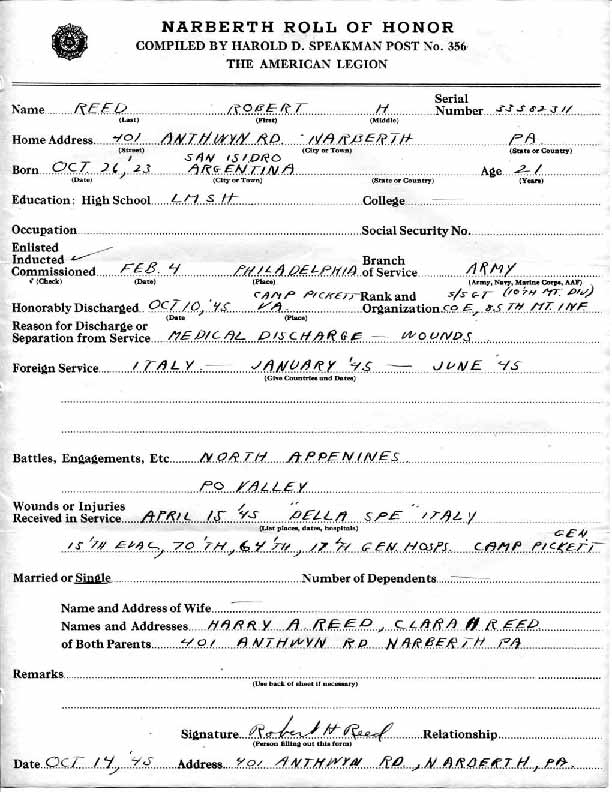 NARBERTH ROLL OF HONOR
COMPILED BY HAROLD D. SPEAKMAN POST No. 356
THE AMERICAN LEGION
Name REED ROBERT H Serial Number 33582311
(Last) (First) (Middle)
Home Address 401 ANTHWYN RD. NARBERTH PA.
(Street) (City or Town) (State or Country)
Born OCT. 26, '23 SAN ISIDRO ARGENTINA Age 21
(Date) (City or Town) (State or Country) (Years)
Education: High School L M S H College
Occupation Social Security No.
Enlisted
Inducted ✓
Commissioned FEB. 4 PHILADELPHIA Branch of Service ARMY
√ (Check) (Date) (Place) (Army, Navy, Marine Corps, AAF)
Honorably Discharged OCT 10, '45 CAMP PICKETT VA. Rank and Organization S/SGT (10TH MT. DIV) CO E, 85TH MT. INF
(Date (Place)
Reason for Discharge or
Separation from Service MEDICAL DISCHARGE — WOUNDS
Foreign Service ITALY — JANUARY '45 — JUNE '45
(Give Countries and Dates)
Battles, Engagements, Etc. NORTH APPENINES
PO VALLEY
Wounds or Injuries
Received in Service APRIL 15 '45 "DELLA SPE" ITALY
(List places, dates, hospitals)
15'TH EVAC, 70'TH, 64'TH, 17'TH GEN. HOSPS. CAMP PICKETT GEN.
Married or Single Number of Dependents
Name and Address of Wife
Names and Addresses HARRY A REED, CLARA H REED
of Both Parents 401 ANTHWYN RD NARBERTH PA
Remarks
(Use back of sheet if necessary)
Signature Robert H Reed Relationship
(Person filling out this form)
Date OCT 14, '45 Address 401 ANTHWYN RD, NARBERTH, PA.